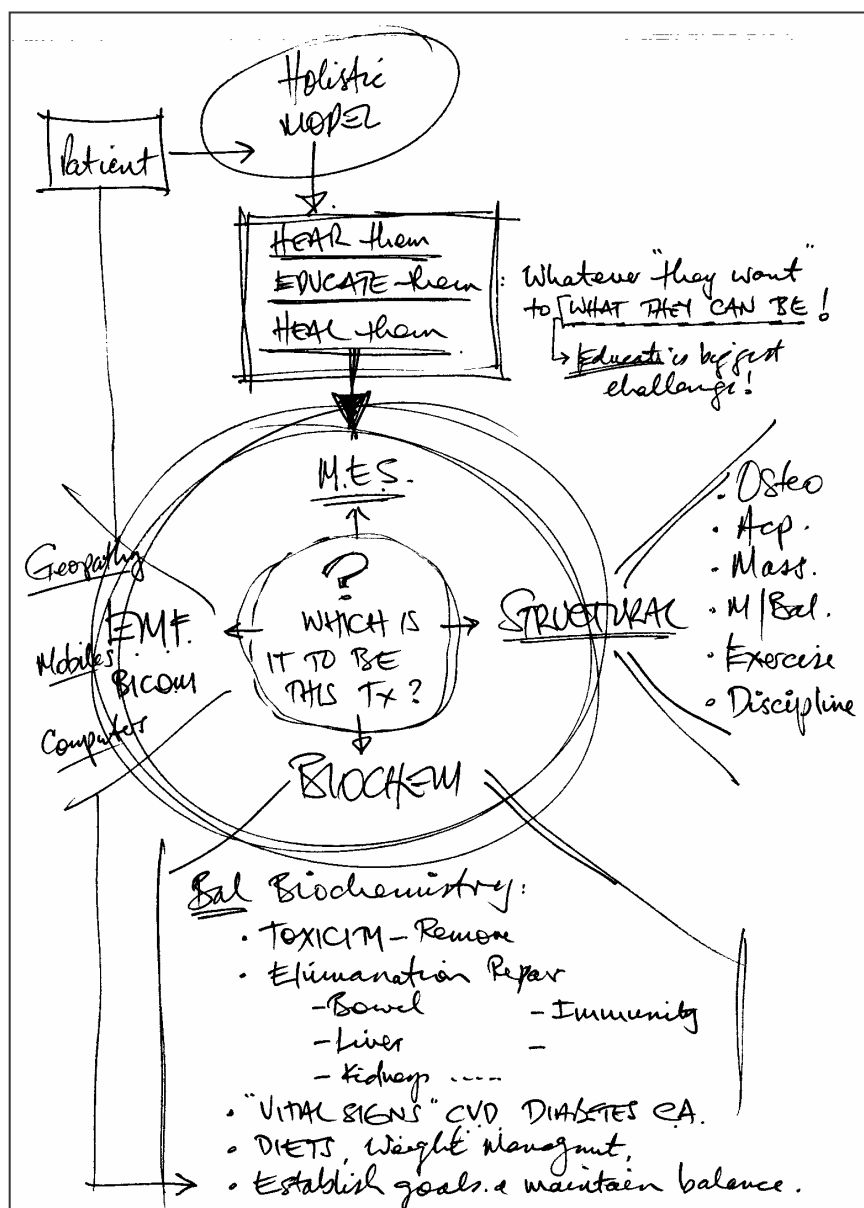 Holistic
MODEL
Patient
HEAR them
EDUCATE them
HEAL them
: Whatever "they want"
to WHAT THEY CAN BE!
Educati is biggest
challenge!
M.E.S.
?
WHICH IS
IT TO BE
THIS Tx?
Geopathy
EMF.
Mobiles
BICOM
Computers
STRUCTURAL
• Osteo
• Acp.
• Mass.
• M/Bal.
• Exercise
• Discipline
BIOCHEM
Bal Biochemistry:
• TOXICITY – Remove
• Elimanation Repair
– Bowel
– Immunity
– Liver
–
– Kidneys .....
• "VITAL SIGNS" CVD DIABETES CA.
• DIETS, Weight Managmnt,
• Establish goals & maintain balance.